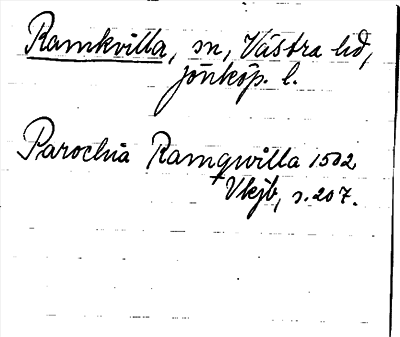 Ramkvilla, sn, Västra hd,
Jönköp. l.
Parochia Ramqwilla 1502
Vkjb, s. 207.